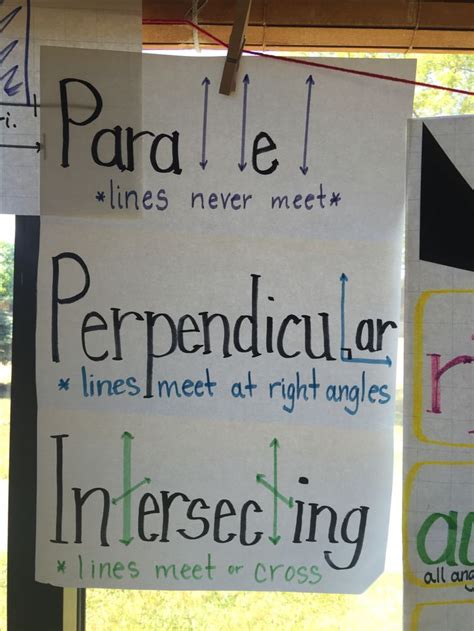 Parallel
*lines never meet*
Perpendicular
* lines meet at right angles
Intersecting
* lines meet or cross
i.
ri
all ang